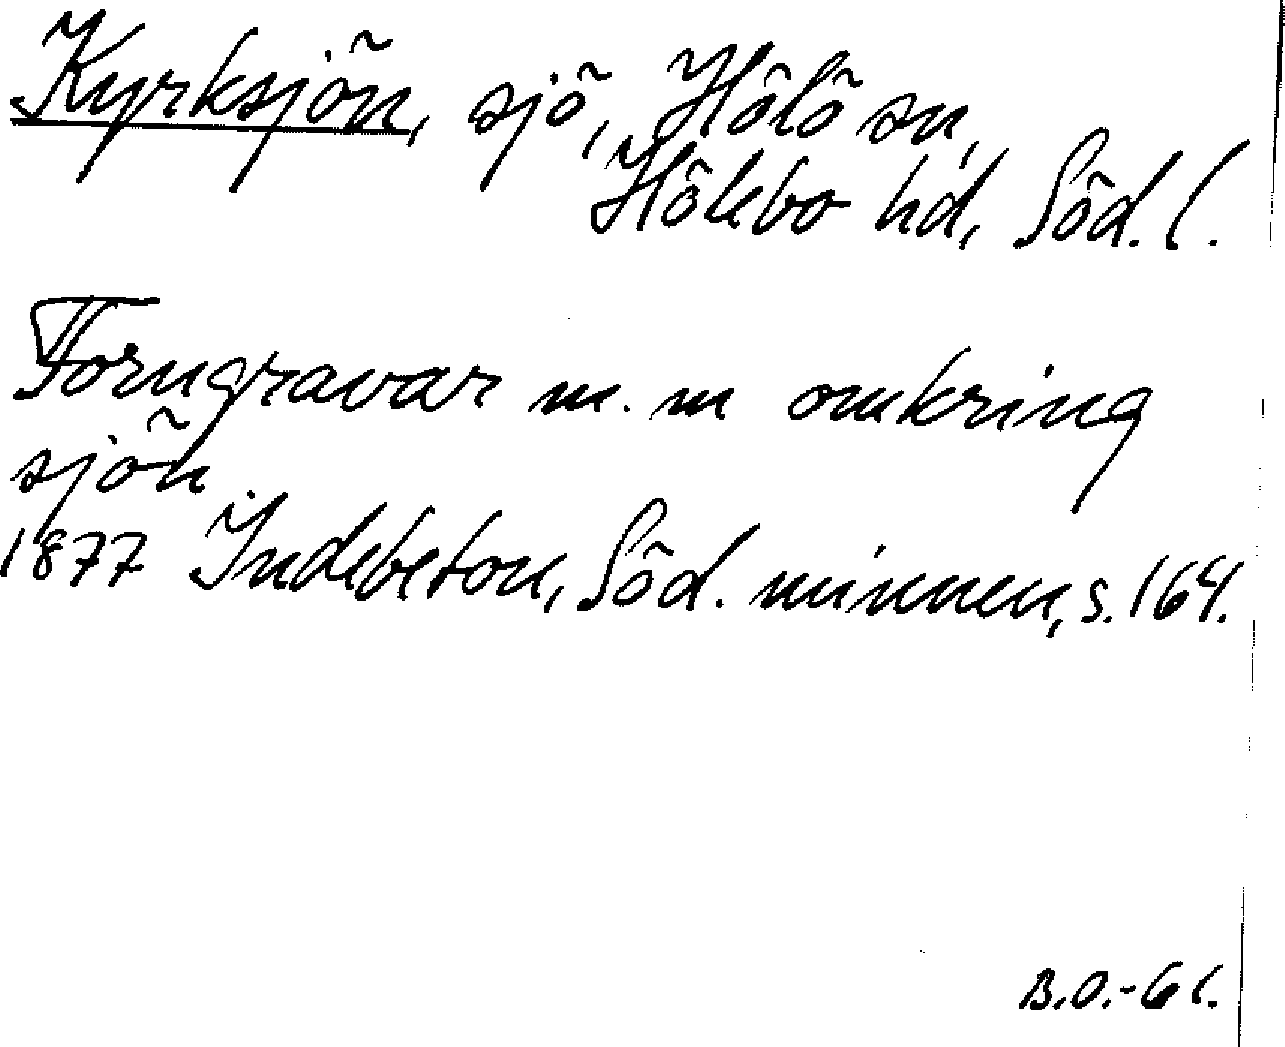 Kyrksjön, sjö, Hölö sn,
Hölebo hd, Söd. l.
Forngravar m. m omkring
sjön
1877 Indebetou, Söd. minnen, s. 164.
B.O.-61.